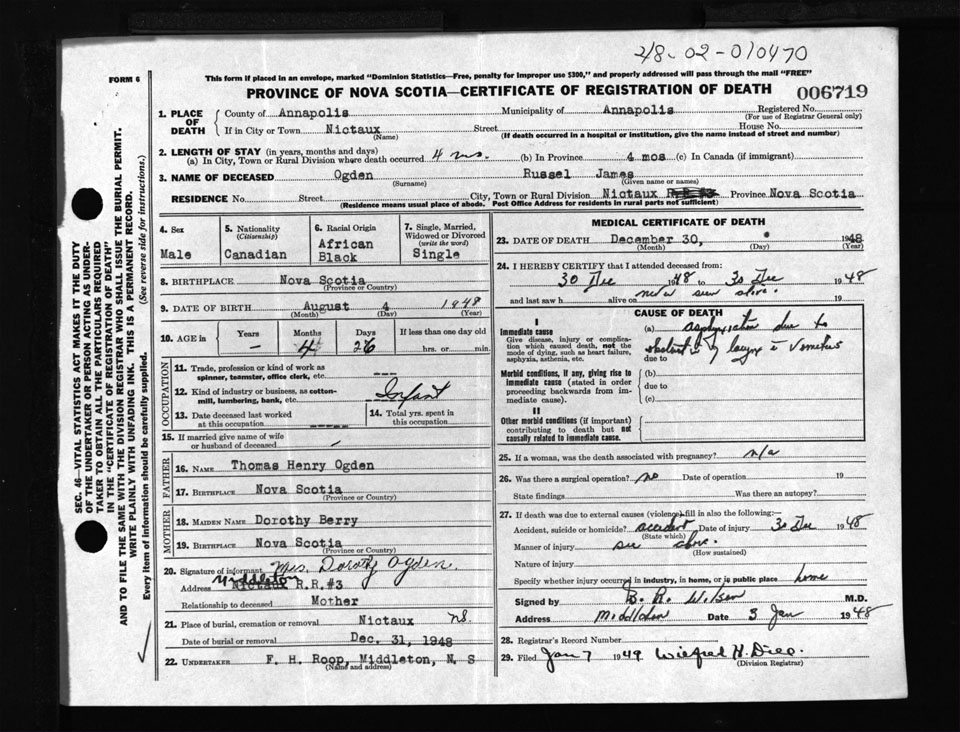 2/8-02-010470
FORM 6
This form if placed in an envelope, marked "Dominion Statistics—Free, penalty for improper use $300," and properly addressed will pass through the mail "FREE"
PROVINCE OF NOVA SCOTIA—CERTIFICATE OF REGISTRATION OF DEATH 006719
SEC. 46—VITAL STATISTICS ACT MAKES IT THE DUTY
OF THE UNDERTAKER OR PERSON ACTING AS UNDER-
TAKER TO OBTAIN ALL THE PARTICULARS REQUIRED
IN THE "CERTIFICATE OF REGISTRATION OF DEATH"
AND TO FILE THE SAME WITH THE DIVISION REGISTRAR WHO SHALL ISSUE THE BURIAL PERMIT.
WRITE PLAINLY WITH UNFADING INK. THIS IS A PERMANENT RECORD.
Every item of information should be carefully supplied. (See reverse side for instructions.)
1. PLACE OF DEATH County of Annapolis Municipality of Annapolis Registered No.
(For use of Registrar General only)
If in City or Town Nictaux Street House No.
(Name) (If death occurred in a hospital or institution, give the name instead of street and number)
2. LENGTH OF STAY (in years, months and days)
(a) In City, Town or Rural Division where death occurred 4 mo. (b) In Province 4 mos (c) In Canada (if immigrant)
3. NAME OF DECEASED Ogden Russel James
(Surname) (Given name or names)
RESIDENCE No. Street City, Town or Rural Division Nictaux Province Nova Scotia
(Residence means usual place of abode. Post Office Address for residents in rural parts not sufficient)
4. Sex
Male
5. Nationality
(Citizenship)
Canadian
6. Racial Origin
African
Black
7. Single, Married,
Widowed or Divorced
(write the word)
Single
8. BIRTHPLACE Nova Scotia
(Province or Country)
9. DATE OF BIRTH August 4 1948
(Month) (Day) (Year)
10. AGE in Years Months Days If less than one day old
– 4 26 hrs. or min.
OCCUPATION
11. Trade, profession or kind of work as
spinner, teamster, office clerk, etc. ---
12. Kind of industry or business, as cotton-
mill, lumbering, bank, etc. Infant
13. Date deceased last worked
at this occupation ----
14. Total yrs. spent in
this occupation
15. If married give name of wife
or husband of deceased –
FATHER
16. NAME Thomas Henry Ogden
17. BIRTHPLACE Nova Scotia
(Province or Country)
MOTHER
18. MAIDEN NAME Dorothy Berry
19. BIRTHPLACE Nova Scotia
(Province or Country)
20. Signature of informant Mrs. Dorothy Ogden
Middleton
Address Nictaux R.R. #3
Relationship to deceased Mother
21. Place of burial, cremation or removal Nictaux NS
Date of burial or removal Dec. 31, 1948
22. UNDERTAKER F. H. Roop, Middleton, N. S
(Name and address)
MEDICAL CERTIFICATE OF DEATH
23. DATE OF DEATH December 30, 1948
(Month) (Day) (Year)
24. I HEREBY CERTIFY that I attended deceased from:
30 Dec 1948 to 30 Dec 1948
and last saw h alive on never seen alive. 19
CAUSE OF DEATH
I
Immediate cause
Give disease, injury or complica-
tion which caused death, not the
mode of dying, such as heart failure,
asphyxia, asthenia, etc.
(a) asphyxiation due to
of larynx
due to
Morbid conditions, if any, giving rise to
immediate cause (stated in order
proceeding backwards from im-
mediate cause).
(b)
due to
(c)
II
Other morbid conditions (if important)
contributing to death but not
causally related to immediate cause.
25. If a woman, was the death associated with pregnancy? n/a
26. Was there a surgical operation? no Date of operation 19
State findings Was there an autopsy?
27. If death was due to external causes (violence) fill in also the following:—
Accident, suicide or homicide? accident Date of injury 30 Dec 1948
(State which)
Manner of injury see above.
(How sustained)
Nature of injury
Specify whether injury occurred in industry, in home, or in public place home
Signed by B. R. Wilson M.D.
Address Middleton Date 3 Jan 1948
28. Registrar's Record Number
29. Filed Jan 7 1949 Wilfred H.
(Division Registrar)